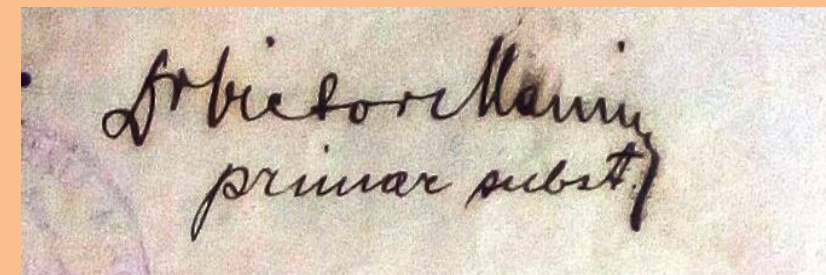 Dr Victor Marin
primar subst.